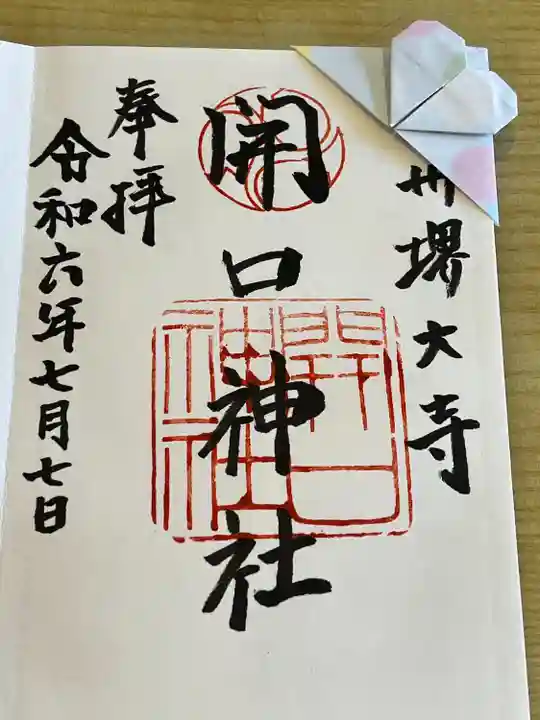 州堺大寺
開口神社
奉拝
令和六年七月七日
開口
神社